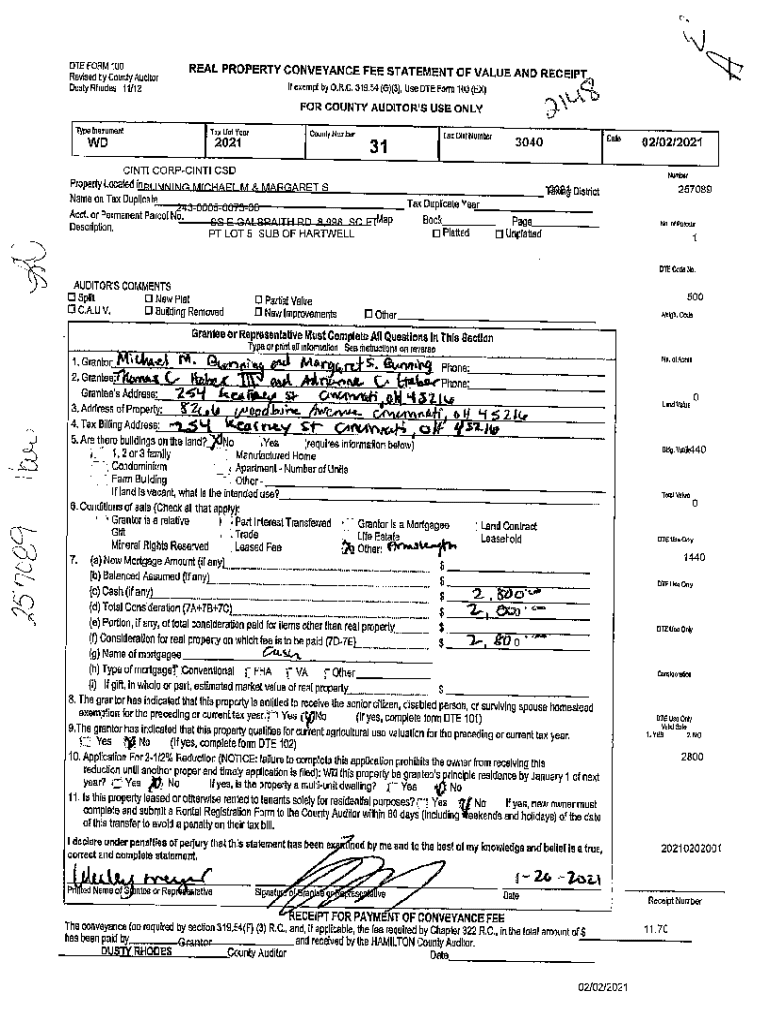 DTE FORM 100
Revised by County Auditor
Dusty Rhodes 11/12
REAL PROPERTY CONVEYANCE FEE STATEMENT OF VALUE AND RECEIPT
If exempt by O.R.C. 319.54 (G)(3), Use DTE Form 100 (EX)
FOR COUNTY AUDITOR'S USE ONLY
2148
Type Instrument WD
Tax List Year 2021
County Number 31
Tax Dist Number 3040
Date 02/02/2021
CINTI CORP-CINTI CSD
Property Located in
BUNNING MICHAEL M & MARGARET S
Taxing District
Number
257089
Name on Tax Duplicate
243-0005-0075-00
Tax Duplicate Year
Acct. or Permanent Parcel No.
SS E GALBRAITH RD 8,998 SC FT
Map Book Page
No. of Parcels
1
Description.
PT LOT 5 SUB OF HARTWELL
Platted Unplatted
DTE Code No.
500
AUDITOR'S COMMENTS
Split New Plat Partial Value
C.A.U.V. Building Removed New Improvements Other
Neigh. Code
Grantee or Representative Must Complete All Questions In This Section
Type or print all information See instructions on reverse
No. of Acres
1. Grantor Michael M. Bunning and Margaret S. Bunning Phone:
2. Grantee: Thomas C Haber III and Adrienne C Haber Phone:
Grantee's Address: 254 Kearney St Cincinnati, OH 45216
Land Value
0
3. Address of Property: 8266 Woodbine Avenue Cincinnati, OH 45216
4. Tax Billing Address: 254 Kearney St Cincinnati, OH 45216
5. Are there buildings on the land? No Yes (requires information below)
1, 2 or 3 family Manufactured Home
Bldg. Value
1440
Condominium Apartment - Number of Units
Farm Building Other -
If land is vacant, what is the intended use?
Total Value
0
6. Conditions of sale (Check all that apply):
Grantor is a relative Part Interest Transferred Grantor is a Mortgagee Land Contract
Gift Trade Life Estate Leasehold
Mineral Rights Reserved Leased Fee Other: Armslength
DTE Use Only
1440
7. (a) New Mortgage Amount (if any) $
(b) Balanced Assumed (if any) $
DTE Use Only
(c) Cash (if any) $ 2,800
(d) Total Consideration (7A+7B+7C) $ 2,800
(e) Portion, if any, of total consideration paid for items other than real property $
DTE Use Only
(f) Consideration for real property on which fee is to be paid (7D-7E) $ 2,800
(g) Name of mortgagee Cash
(h) Type of mortgage? Conventional FHA VA Other
Consideration
(i) If gift, in whole or part, estimated market value of real property $
8. The grantor has indicated that this property is entitled to receive the senior citizen, disabled person, or surviving spouse homestead
exemption for the preceding or current tax year. Yes No (If yes, complete form DTE 101)
DTE Use Only
Valid Sale
1. YES 2. NO
9. The grantor has indicated that this property qualifies for current agricultural use valuation for the preceding or current tax year.
Yes No (If yes, complete form DTE 102)
2800
10. Application For 2-1/2% Reduction (NOTICE: failure to complete this application prohibits the owner from receiving this
reduction until another proper and timely application is filed): Will this property be grantee's principle residence by January 1 of next
year? Yes No If yes, is the property a multi-unit dwelling? Yes No
11. Is this property leased or otherwise rented to tenants solely for residential purposes? Yes No If yes, new owner must
complete and submit a Rental Registration Form to the County Auditor within 60 days (including weekends and holidays) of the date
of this transfer to avoid a penalty on their tax bill.
I declare under penalties of perjury that this statement has been examined by me and to the best of my knowledge and belief is a true,
correct and complete statement.
20210202001
Wesley Meyer
1-26-2021
Printed Name of Grantee or Representative Signature of Grantee or Representative Date
Receipt Number
RECEIPT FOR PAYMENT OF CONVEYANCE FEE
The conveyance fee required by section 319.54(F) (3) R.C., and, if applicable, the fee required by Chapter 322 R.C., in the total amount of $ 11.70
has been paid by Grantor and received by the HAMILTON County Auditor.
DUSTY RHODES County Auditor Date
02/02/2021
257089